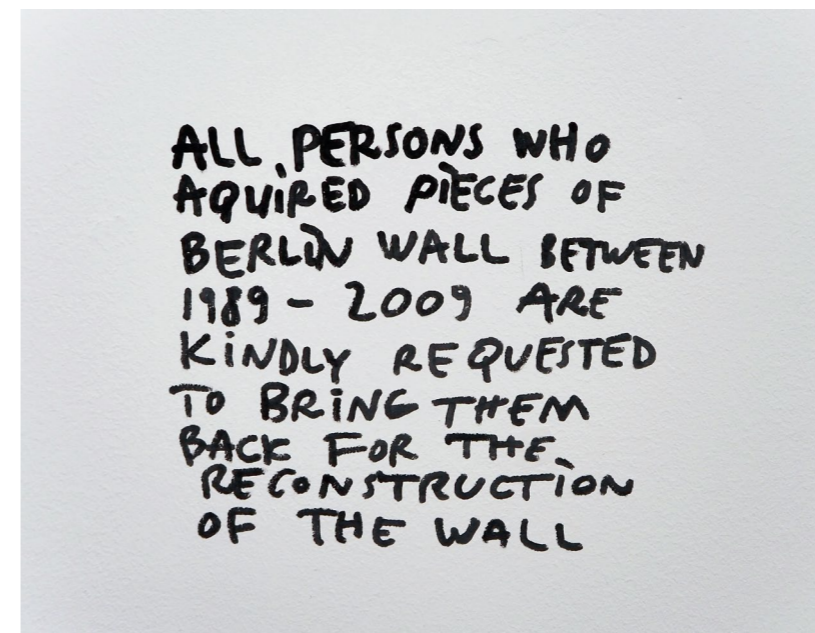 ALL PERSONS WHO
AQUIRED PIECES OF
BERLIN WALL BETWEEN
1989 - 2009 ARE
KINDLY REQUESTED
TO BRING THEM
BACK FOR THE
RECONSTRUCTION
OF THE WALL